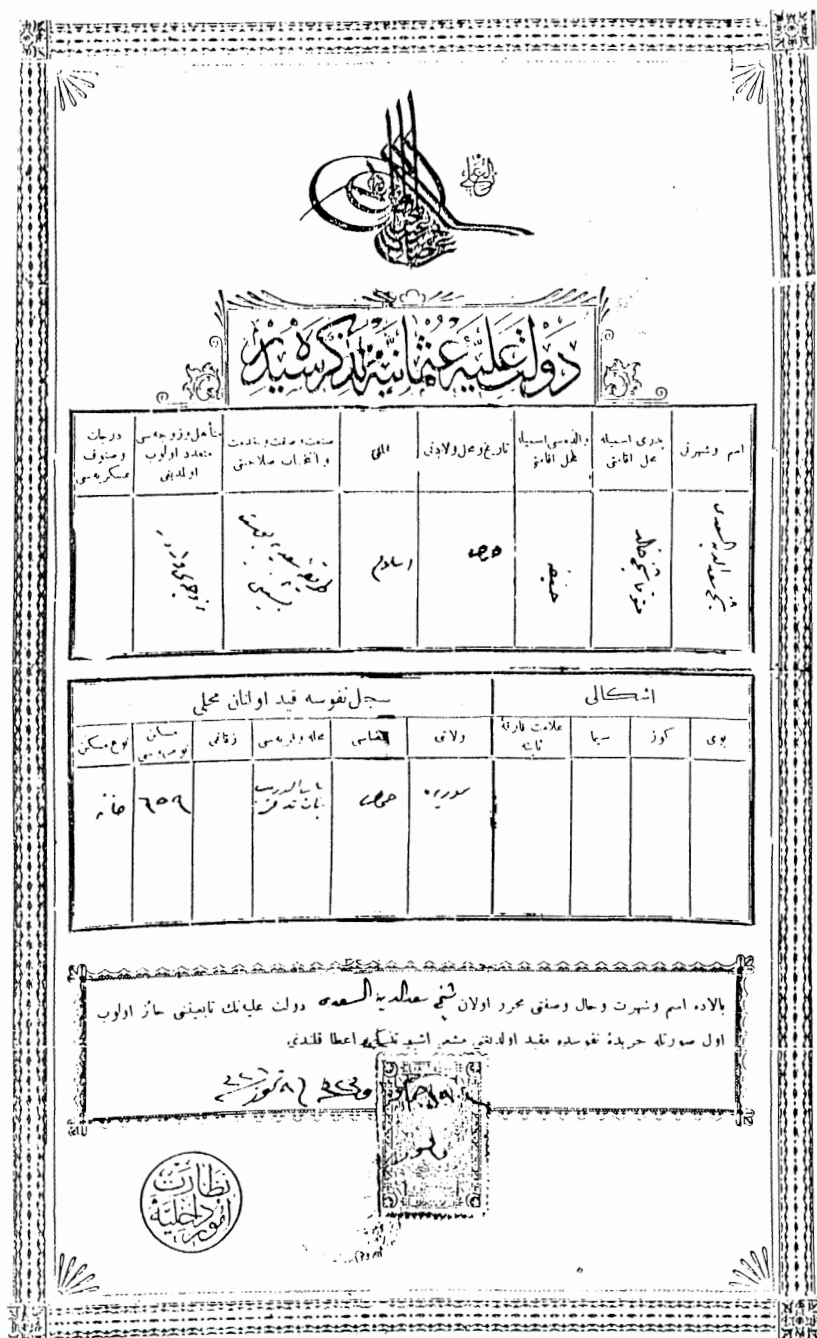 الغازی
دولت علیهٔ عثمانیه تذکره سیدر
اسم و شهرتی
پدری اسمیله محل اقامتی
والده سی اسمیله محل اقامتی
تاریخ و محل ولادتی
ملتی
صنعت و صفت و خدمت و انتخاب صلاحیتی
متأهل و زوجه سی متعدد اولوب اولمدیغی
درجات و صنوف عسکریه سی
شیخ سعد الدین السعدی
متوفا شیخ خالد
حمص
اسلام
اشکالی
سجل نفوسه قید اولنان محلی
بوی
کوز
سیما
علامت فارقهٔ ثابته
ولایتی
قضاسی
محله و قریه سی
زقاقی
مسکن نومروسی
نوع مسکن
سوریه
حمص
باب الدریب
٦٥٩
خانه
بالاده اسم و شهرت و حال و صفتی محرر اولان شیخ سعد الدین السعدی دولت علیه نك تابعیتنی حائز اولوب
اول صورتله جریدهٔ نفوسده مقید اولدیغنی مشعر اشبو تذکره اعطا قلندی
تموز
نظارت
امور داخلیه